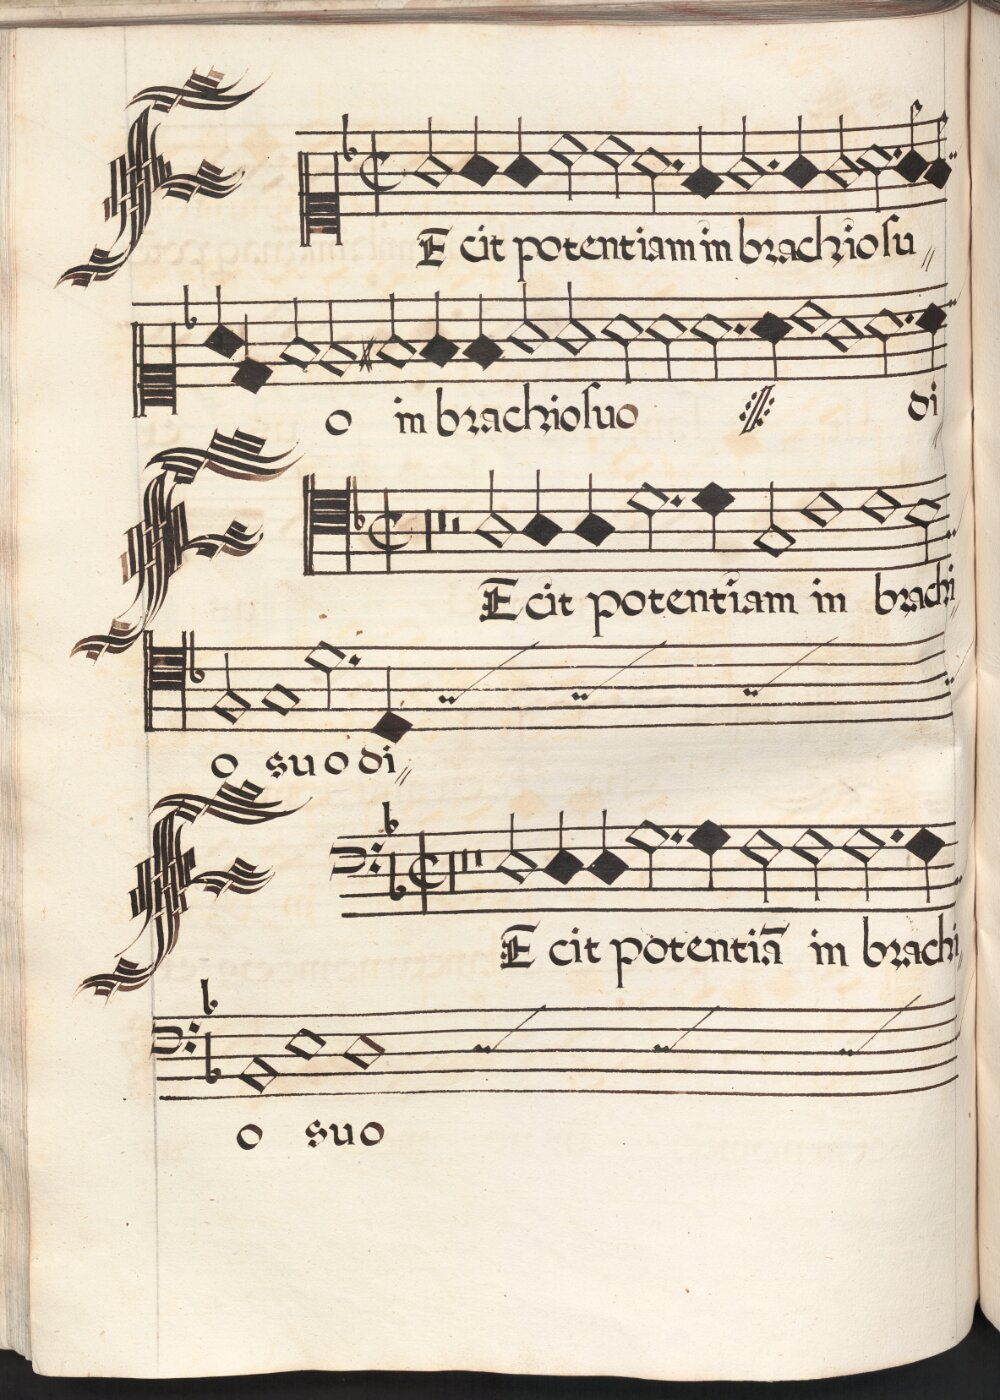 FEcit potentiam in brachio su
o in brachio suo di
FEcit potentiam in brachi
o suo di
FEcit potentiā in brachi
o suo